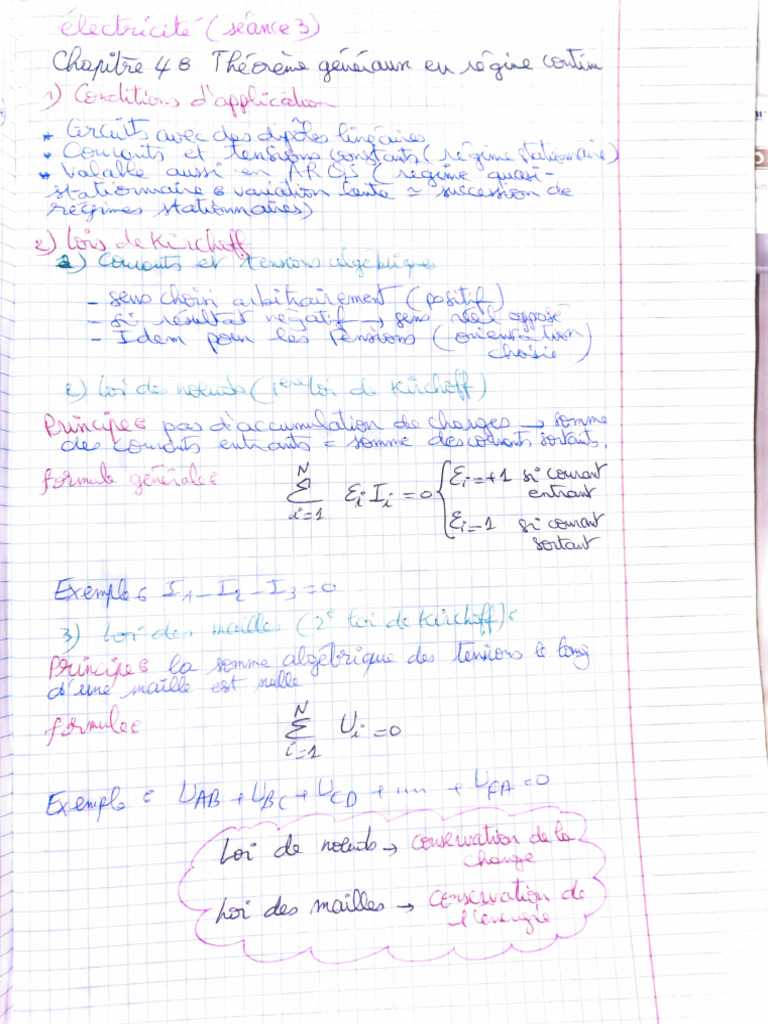 électricité (séance 3)
Chapitre 4 : Théorème généraux en régime continu
1) Conditions d'application
* Circuits avec des dipôles linéaires
* Courants et tensions constants (régime stationnaire)
* Valable aussi en ARQS (régime quasi-
stationnaire : variation lente ≃ succession de
régimes stationnaires)
2) Lois de Kirchoff
a) Courants et tensions algébriques
- sens choisi arbitrairement (positif)
- si résultat négatif → sens réel opposé
- Idem pour les Tensions (orientation
choisie)
2) Loi de noeuds (1ère loi de Kirchoff)
Principe : pas d'accumulation de charges → somme
des courants entrants = somme des courants sortants.
formule générale :
N
∑ εi Ii = 0 { εi = +1 si courant
entrant
i=1
εi -1 si courant
sortant
Exemple : I1 - I2 - I3 = 0
3) Loi des mailles (2e loi de Kirchoff) :
Principe : la somme algébrique des tensions le long
d'une maille est nulle
formule :
N
∑ Ui = 0
i=1
Exemple : UAB + UBC + UCD + .... + UFA = 0
Loi de noeuds → conservation de la
charge
Loi des mailles → conservation de
l'énergie